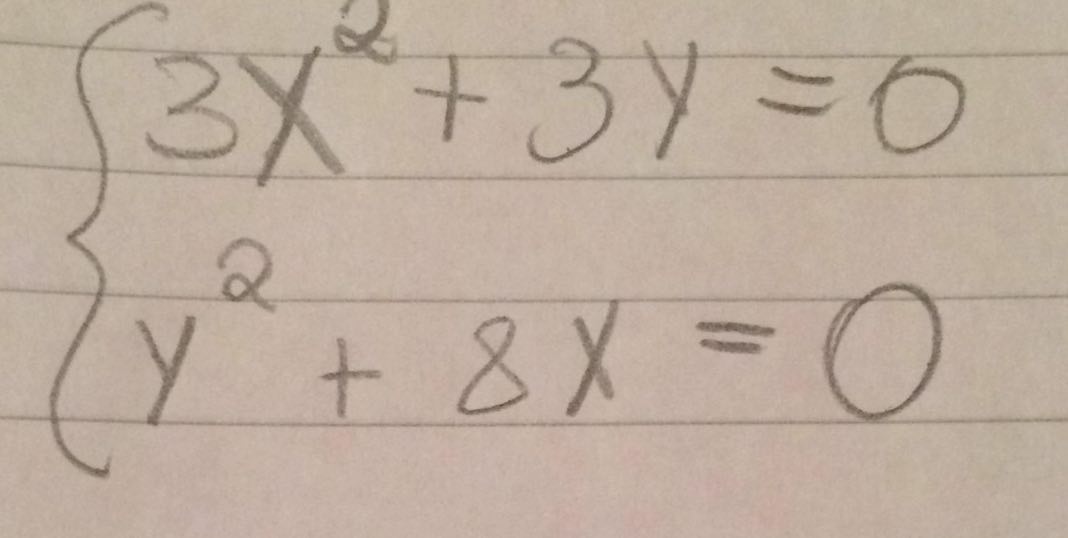 3x² + 3y = 0
y² + 8x = 0